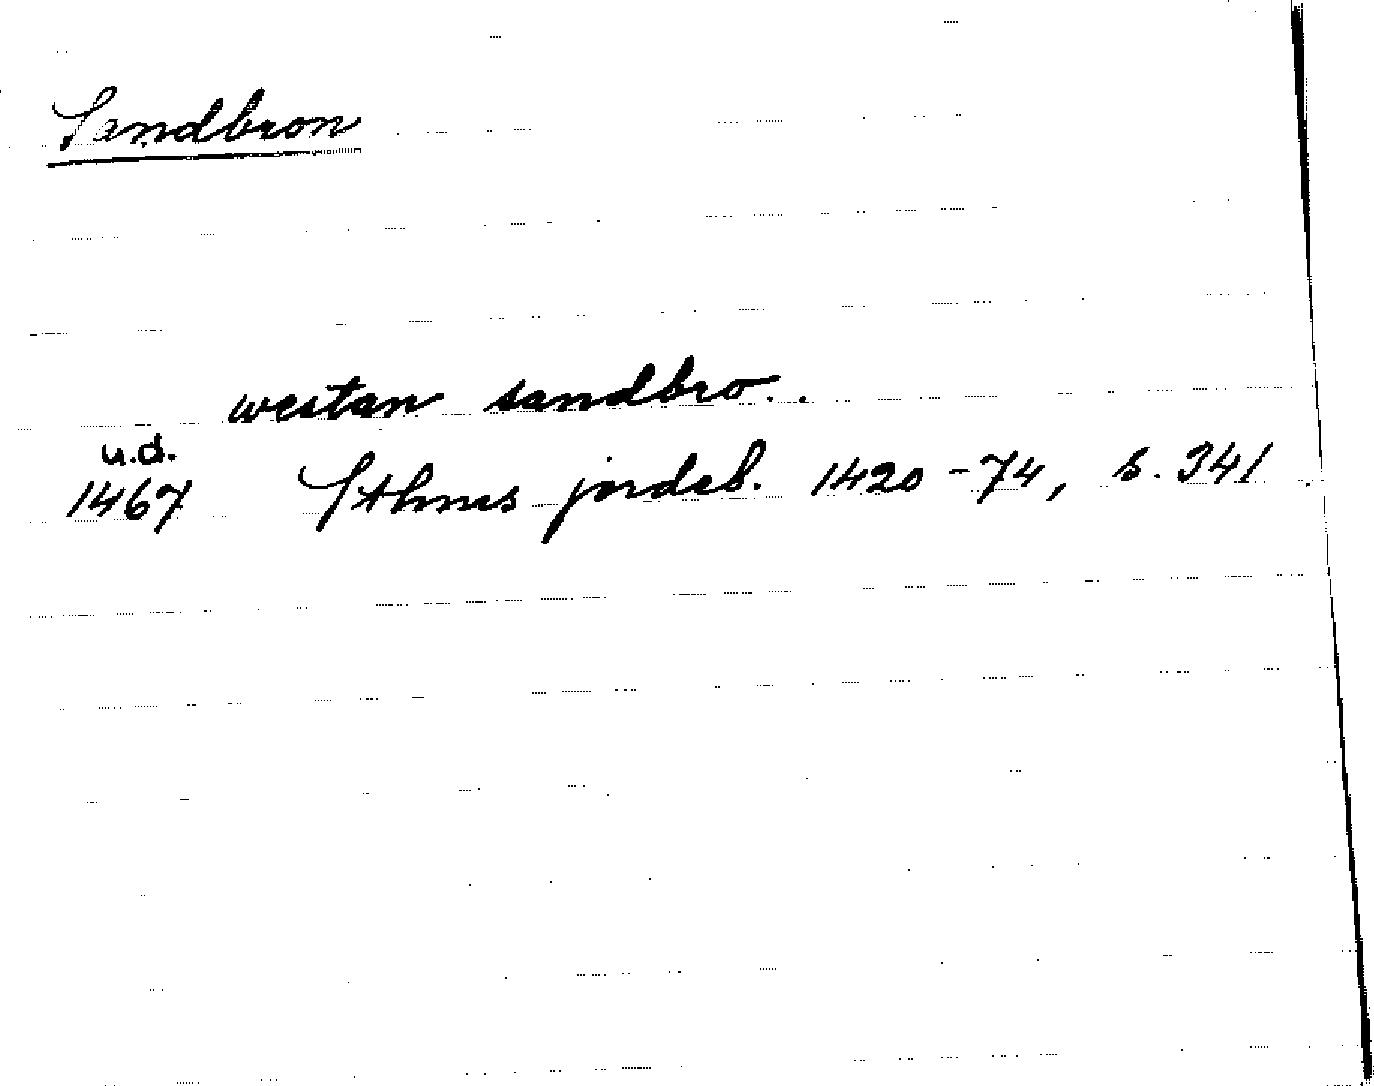 Sandbron
westan sandbro..
u.d.
1467 Sthms jordeb. 1420-74, s. 341